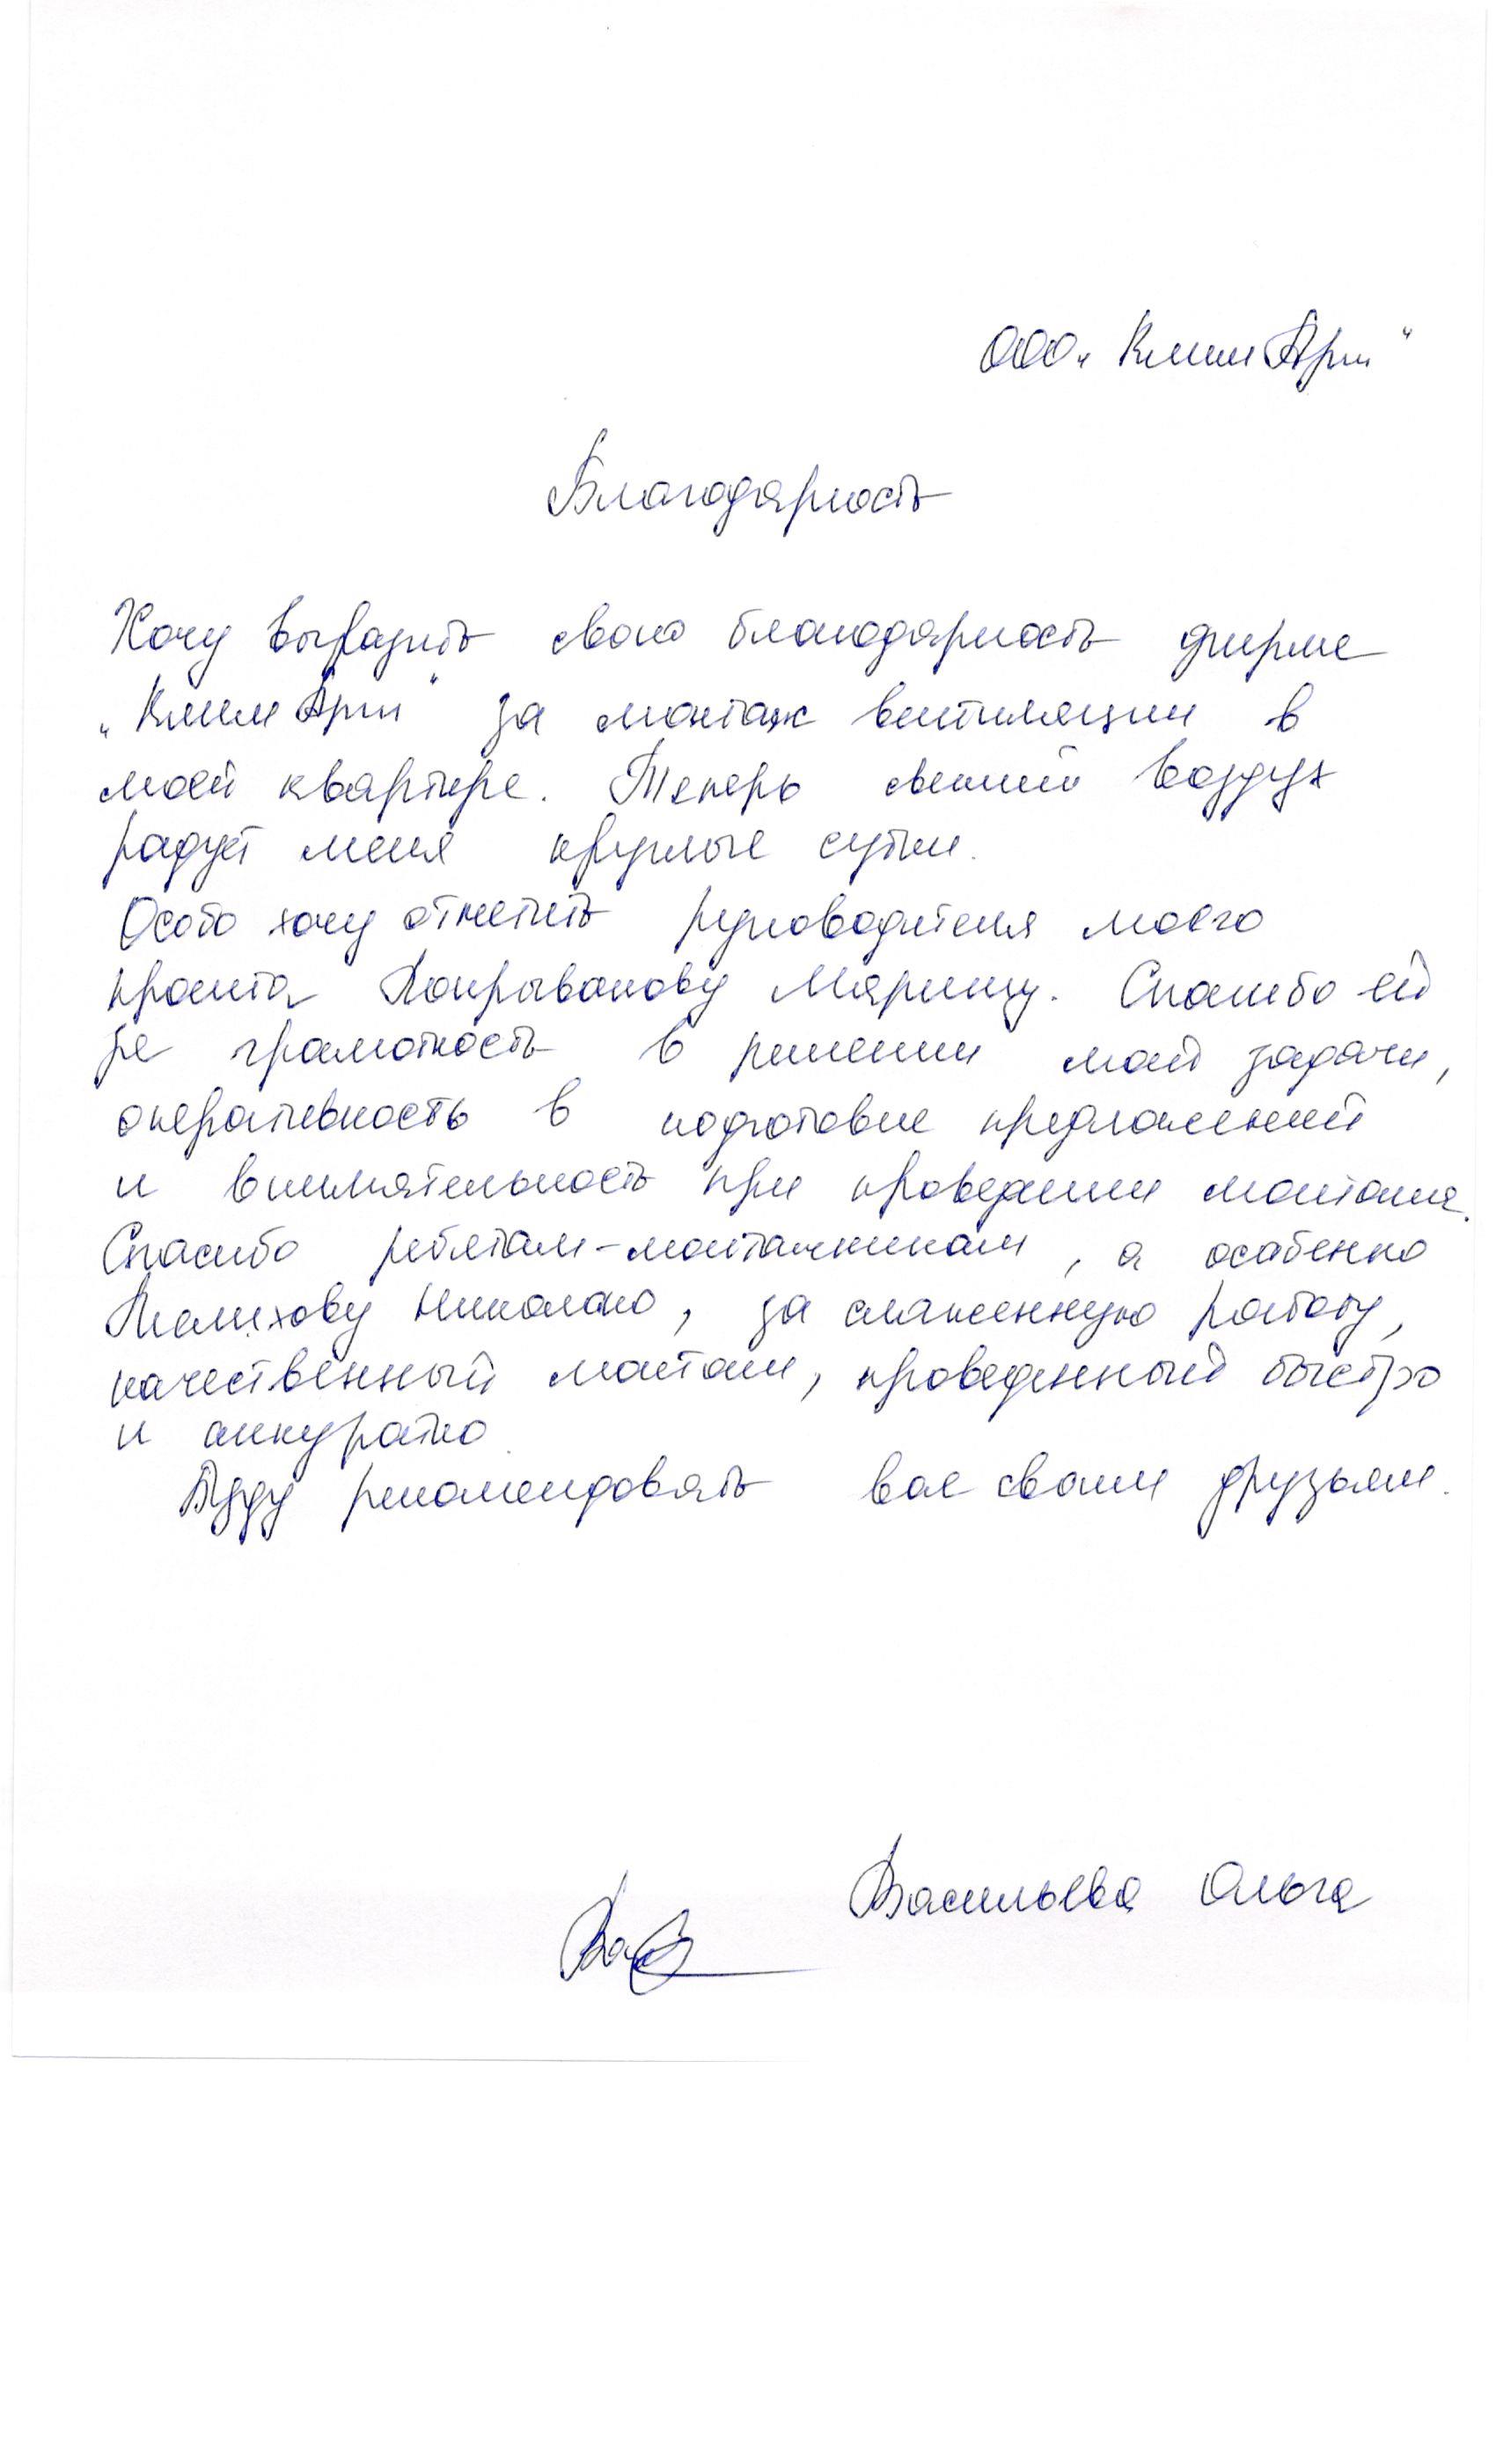 ООО „КлимАрт"
Благодарность
Хочу выразить свою благодарность фирме
„КлимАрт" за монтаж вентиляции в
моей квартире. Теперь свежий воздух
радует меня круглые сутки.
Особо хочу отметить руководителя моего
проекта Марину. Спасибо ей
за грамотность в решении моей задачи,
оперативность в подготовке предложений
и внимательность при проведении монтажа.
Спасибо ребятам-монтажникам, а особенно
Николаю, за слаженную работу,
качественный монтаж, проведенный быстро
и аккуратно.
Буду рекомендовать вас своим друзьям.
Васильева Ольга